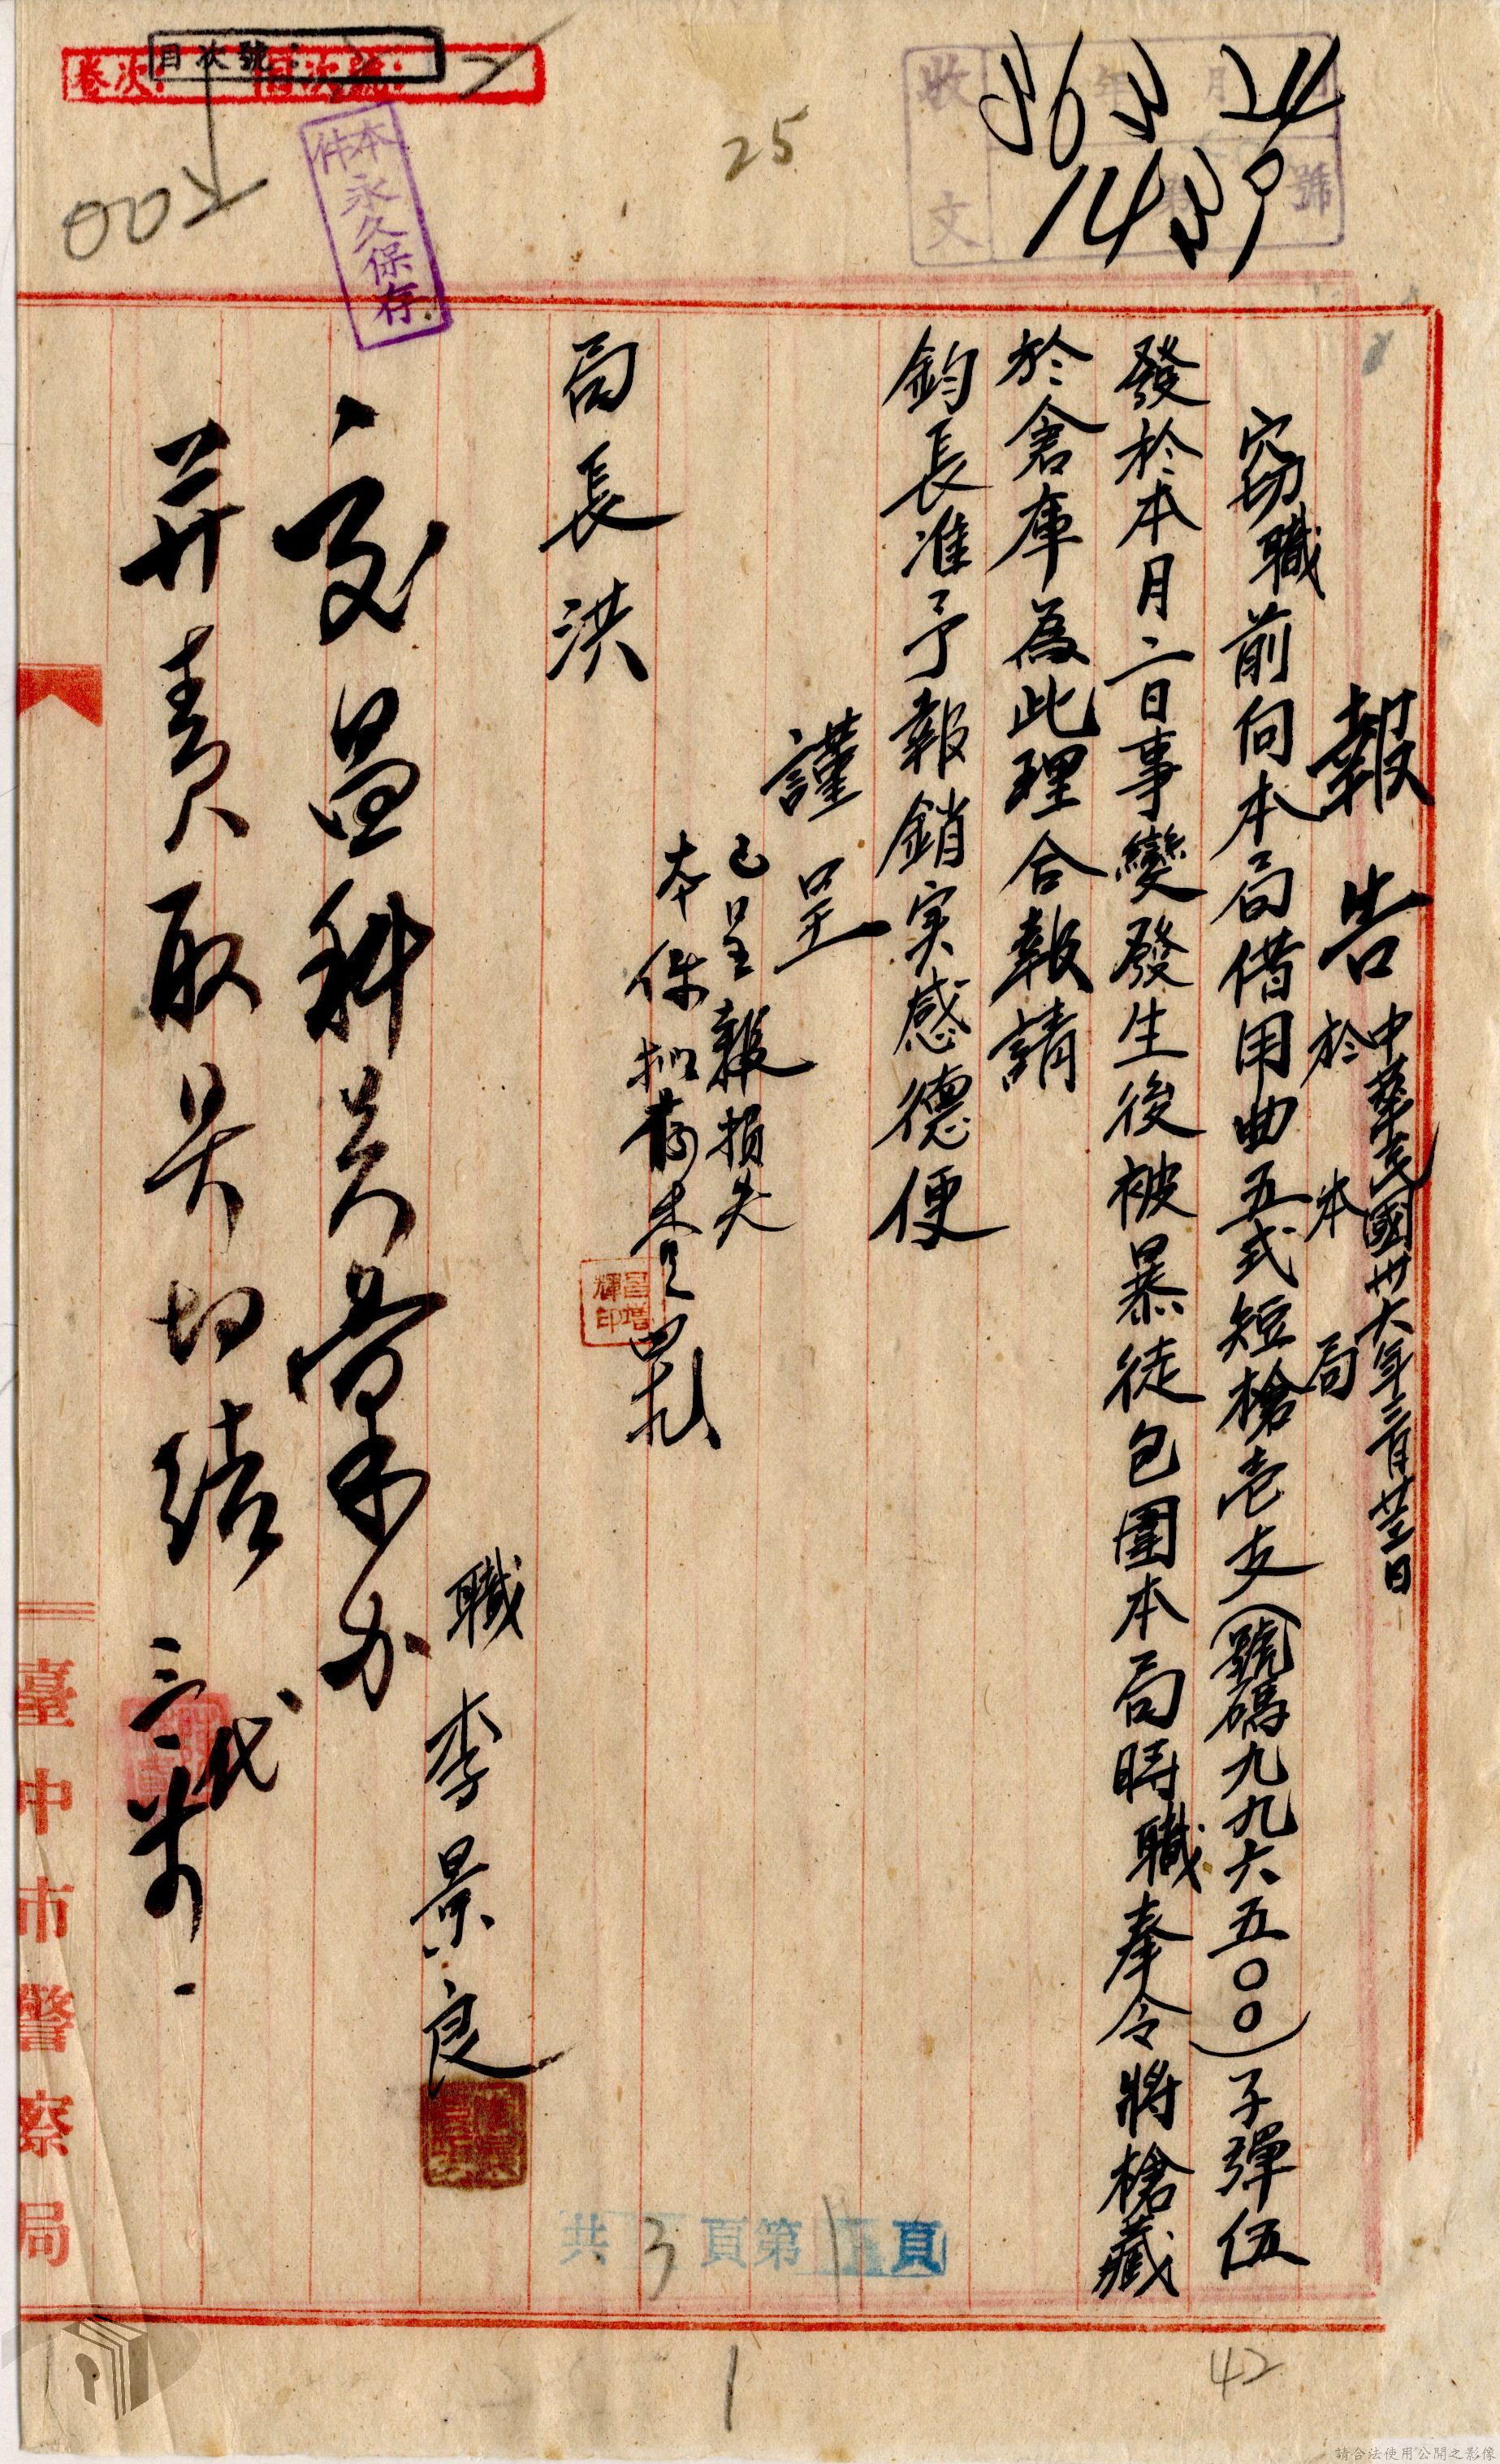 目次號：
卷次：　目次號：
本件永久保存
25
收文　年　月　日　第　號
36 3 24
1439
報告 中華民國卅六年三月廿三日
於本局
竊職前向本局借用曲五式短槍壱支(號碼九九六五〇〇)子彈伍
發於本月二日事變發生後被暴徒包圍本局時職奉令將槍藏
於倉庫為此理合報請
鈞長准予報銷実感德便
謹呈
已呈報損失
本件擬
局長洪
職李景良
交呂科員彙办
并責取具切結
代
臺中市警察局
共3頁第1頁
1
42
請合法使用公開之影像